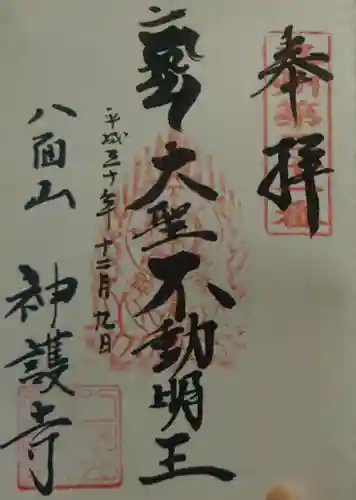 奉拝
大聖不動明王
平成三十年十二月九日
八面山
神護寺